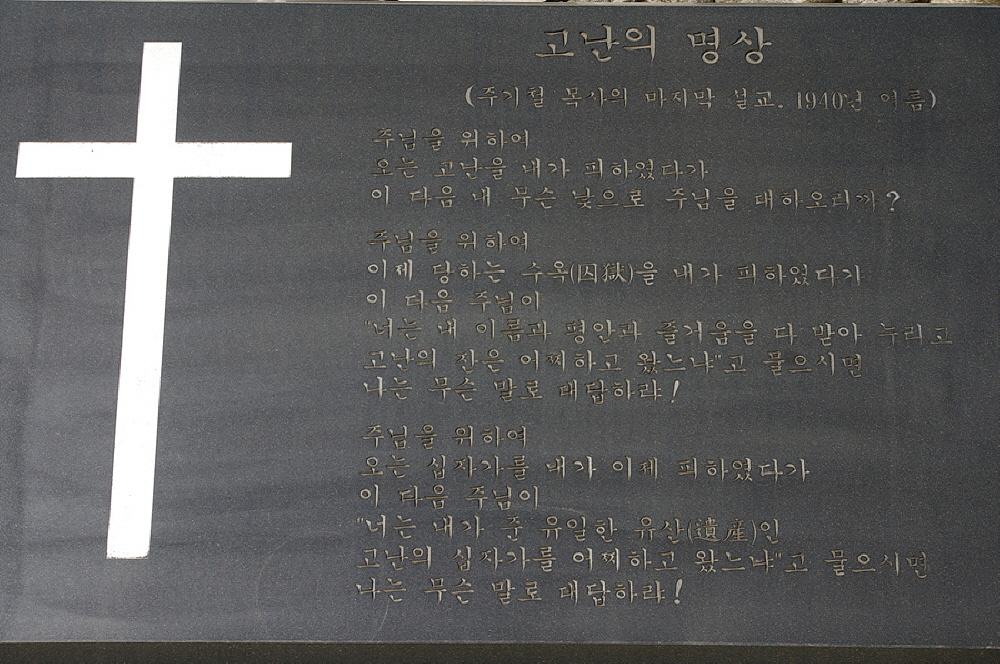 고난의 명상
(주기철 목사의 마지막 설교. 1940년 여름)
주님을 위하여
오는 고난을 내가 피하였다가
이 다음 내 무슨 낯으로 주님을 대하오리까?
주님을 위하여
이제 당하는 수옥(囚獄)을 내가 피하였다가
이 다음 주님이
"너는 내 이름과 평안과 즐거움을 다 받아 누리고
고난의 잔은 어찌하고 왔느냐"고 물으시면
나는 무슨 말로 대답하랴!
주님을 위하여
오는 십자가를 내가 이제 피하였다가
이 다음 주님이
"너는 내가 준 유일한 유산(遺産)인
고난의 십자가를 어찌하고 왔느냐"고 물으시면
나는 무슨 말로 대답하랴!